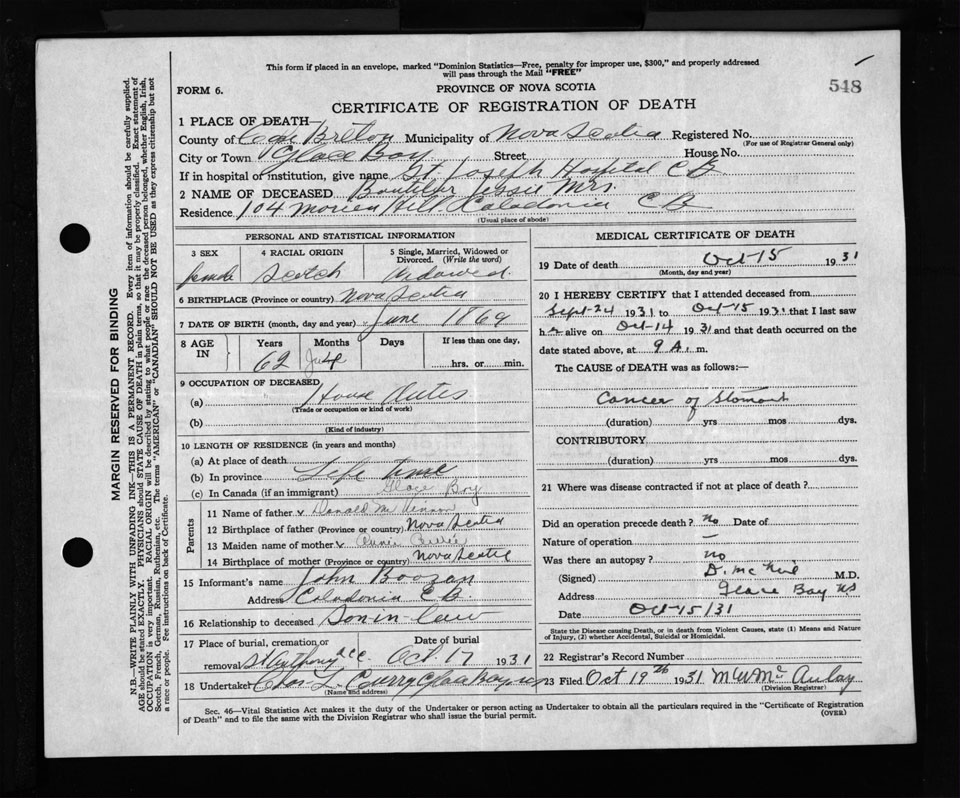 This form if placed in an envelope, marked "Dominion Statistics—Free, penalty for improper use, $300," and properly addressed
will pass through the Mail "FREE"
548
FORM 6.
PROVINCE OF NOVA SCOTIA
CERTIFICATE OF REGISTRATION OF DEATH
1 PLACE OF DEATH—
County of Cape Breton Municipality of Nova Scotia Registered No.
(For use of Registrar General only)
City or Town Glace Bay Street House No.
If in hospital or institution, give name St. Joseph Hospital C B
2 NAME OF DECEASED Boutilier Jessie Mrs.
Residence 104 Morien Hill. Caledonia C B
(Usual place of abode)
PERSONAL AND STATISTICAL INFORMATION
3 SEX 4 RACIAL ORIGIN 5 Single, Married, Widowed or
Divorced. (Write the word)
female Scotch Widowed.
6 BIRTHPLACE (Province or country) Nova Scotia
7 DATE OF BIRTH (month, day and year) June 1869
8 AGE IN Years Months Days If less than one day,
62 4 hrs. or min.
9 OCCUPATION OF DECEASED
(a) House Duties
(Trade or occupation or kind of work)
(b)
(Kind of industry)
10 LENGTH OF RESIDENCE (in years and months)
(a) At place of death
(b) In province Life time
(c) In Canada (if an immigrant) Glace Bay
Parents
11 Name of father Donald Mc
12 Birthplace of father (Province or country) Nova Scotia
13 Maiden name of mother Annie
14 Birthplace of mother (Province or country) Nova Scotia
15 Informant's name John Boozan
Address Caledonia C B.
16 Relationship to deceased Son in law
17 Place of burial, cremation or Date of burial
removal St Anthony Oct 17 1931
18 Undertaker Chas L. Curry Glace Bay
(Name and address)
MEDICAL CERTIFICATE OF DEATH
19 Date of death Oct 15 1931
(Month, day and year)
20 I HEREBY CERTIFY that I attended deceased from
Sept-24 1931 to Oct-15 1931 that I last saw
h er alive on Oct-14 1931 and that death occurred on the
date stated above, at 9 A. m.
The CAUSE of DEATH was as follows:—
Cancer of Stomach
(duration) yrs mos dys.
CONTRIBUTORY
(duration) yrs mos dys.
21 Where was disease contracted if not at place of death?
Did an operation precede death? no Date of
Nature of operation —
Was there an autopsy? no
(Signed) D. McNeil M.D.
Address Glace Bay NS
Date Oct-15/31
State the Disease causing Death, or in death from Violent Causes, state (1) Means and Nature
of Injury, (2) whether Accidental, Suicidal or Homicidal.
22 Registrar's Record Number
23 Filed Oct 19th 1931 M W McAulay
(Division Registrar)
Sec. 46—Vital Statistics Act makes it the duty of the Undertaker or person acting as Undertaker to obtain all the particulars required in the "Certificate of Registration
of Death" and to file the same with the Division Registrar who shall issue the burial permit.
(OVER)
MARGIN RESERVED FOR BINDING
N.B.—WRITE PLAINLY WITH UNFADING INK—THIS IS A PERMANENT RECORD. Every item of information should be carefully supplied.
AGE should be stated EXACTLY. PHYSICIANS should STATE CAUSE OF DEATH in plain terms, so that it may be properly classified. Exact statement of
OCCUPATION is very important. RACIAL ORIGIN will be described by stating to what people or race the deceased person belonged, whether English, Irish,
Scotch, French, German, Russian, Ruthenian, etc. The terms "AMERICAN" or "CANADIAN" SHOULD NOT BE USED as they express citizenship but not
a race or people. See instructions on back of Certificate.